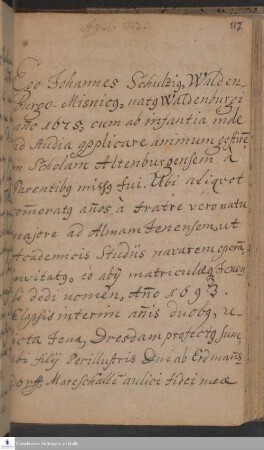 117
Ego Johannes Schultzig, Walden-
burgo-Misnicg, natg Waldenburgi
año 1675, cum ab infantia inde
ad studia applicare animum
in Scholam Altenburgensem à
Parentibg missg fui. Ubi aliquot
comoratg años à fratre vero natu
majore ad Almam Jenensem, ut
Academicis Studiis navarem operā
invitatg, eò abij matriculæq Jenen
si dedi nomen, Año 1693.
Elapsis interim añis duobg, re-
licta Jena, Dresdam profectg sum,
ubi filij Perillustris Dñi ab Erdmañs
dorff, Mareschalli aulici fidei meæ